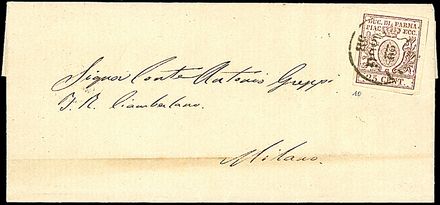 DUC. DI PARMA
PIAC. ECC.
25 CENT.
Signor Conte Antonio Greppi
I. R. Ciambelano.
Milano.
10